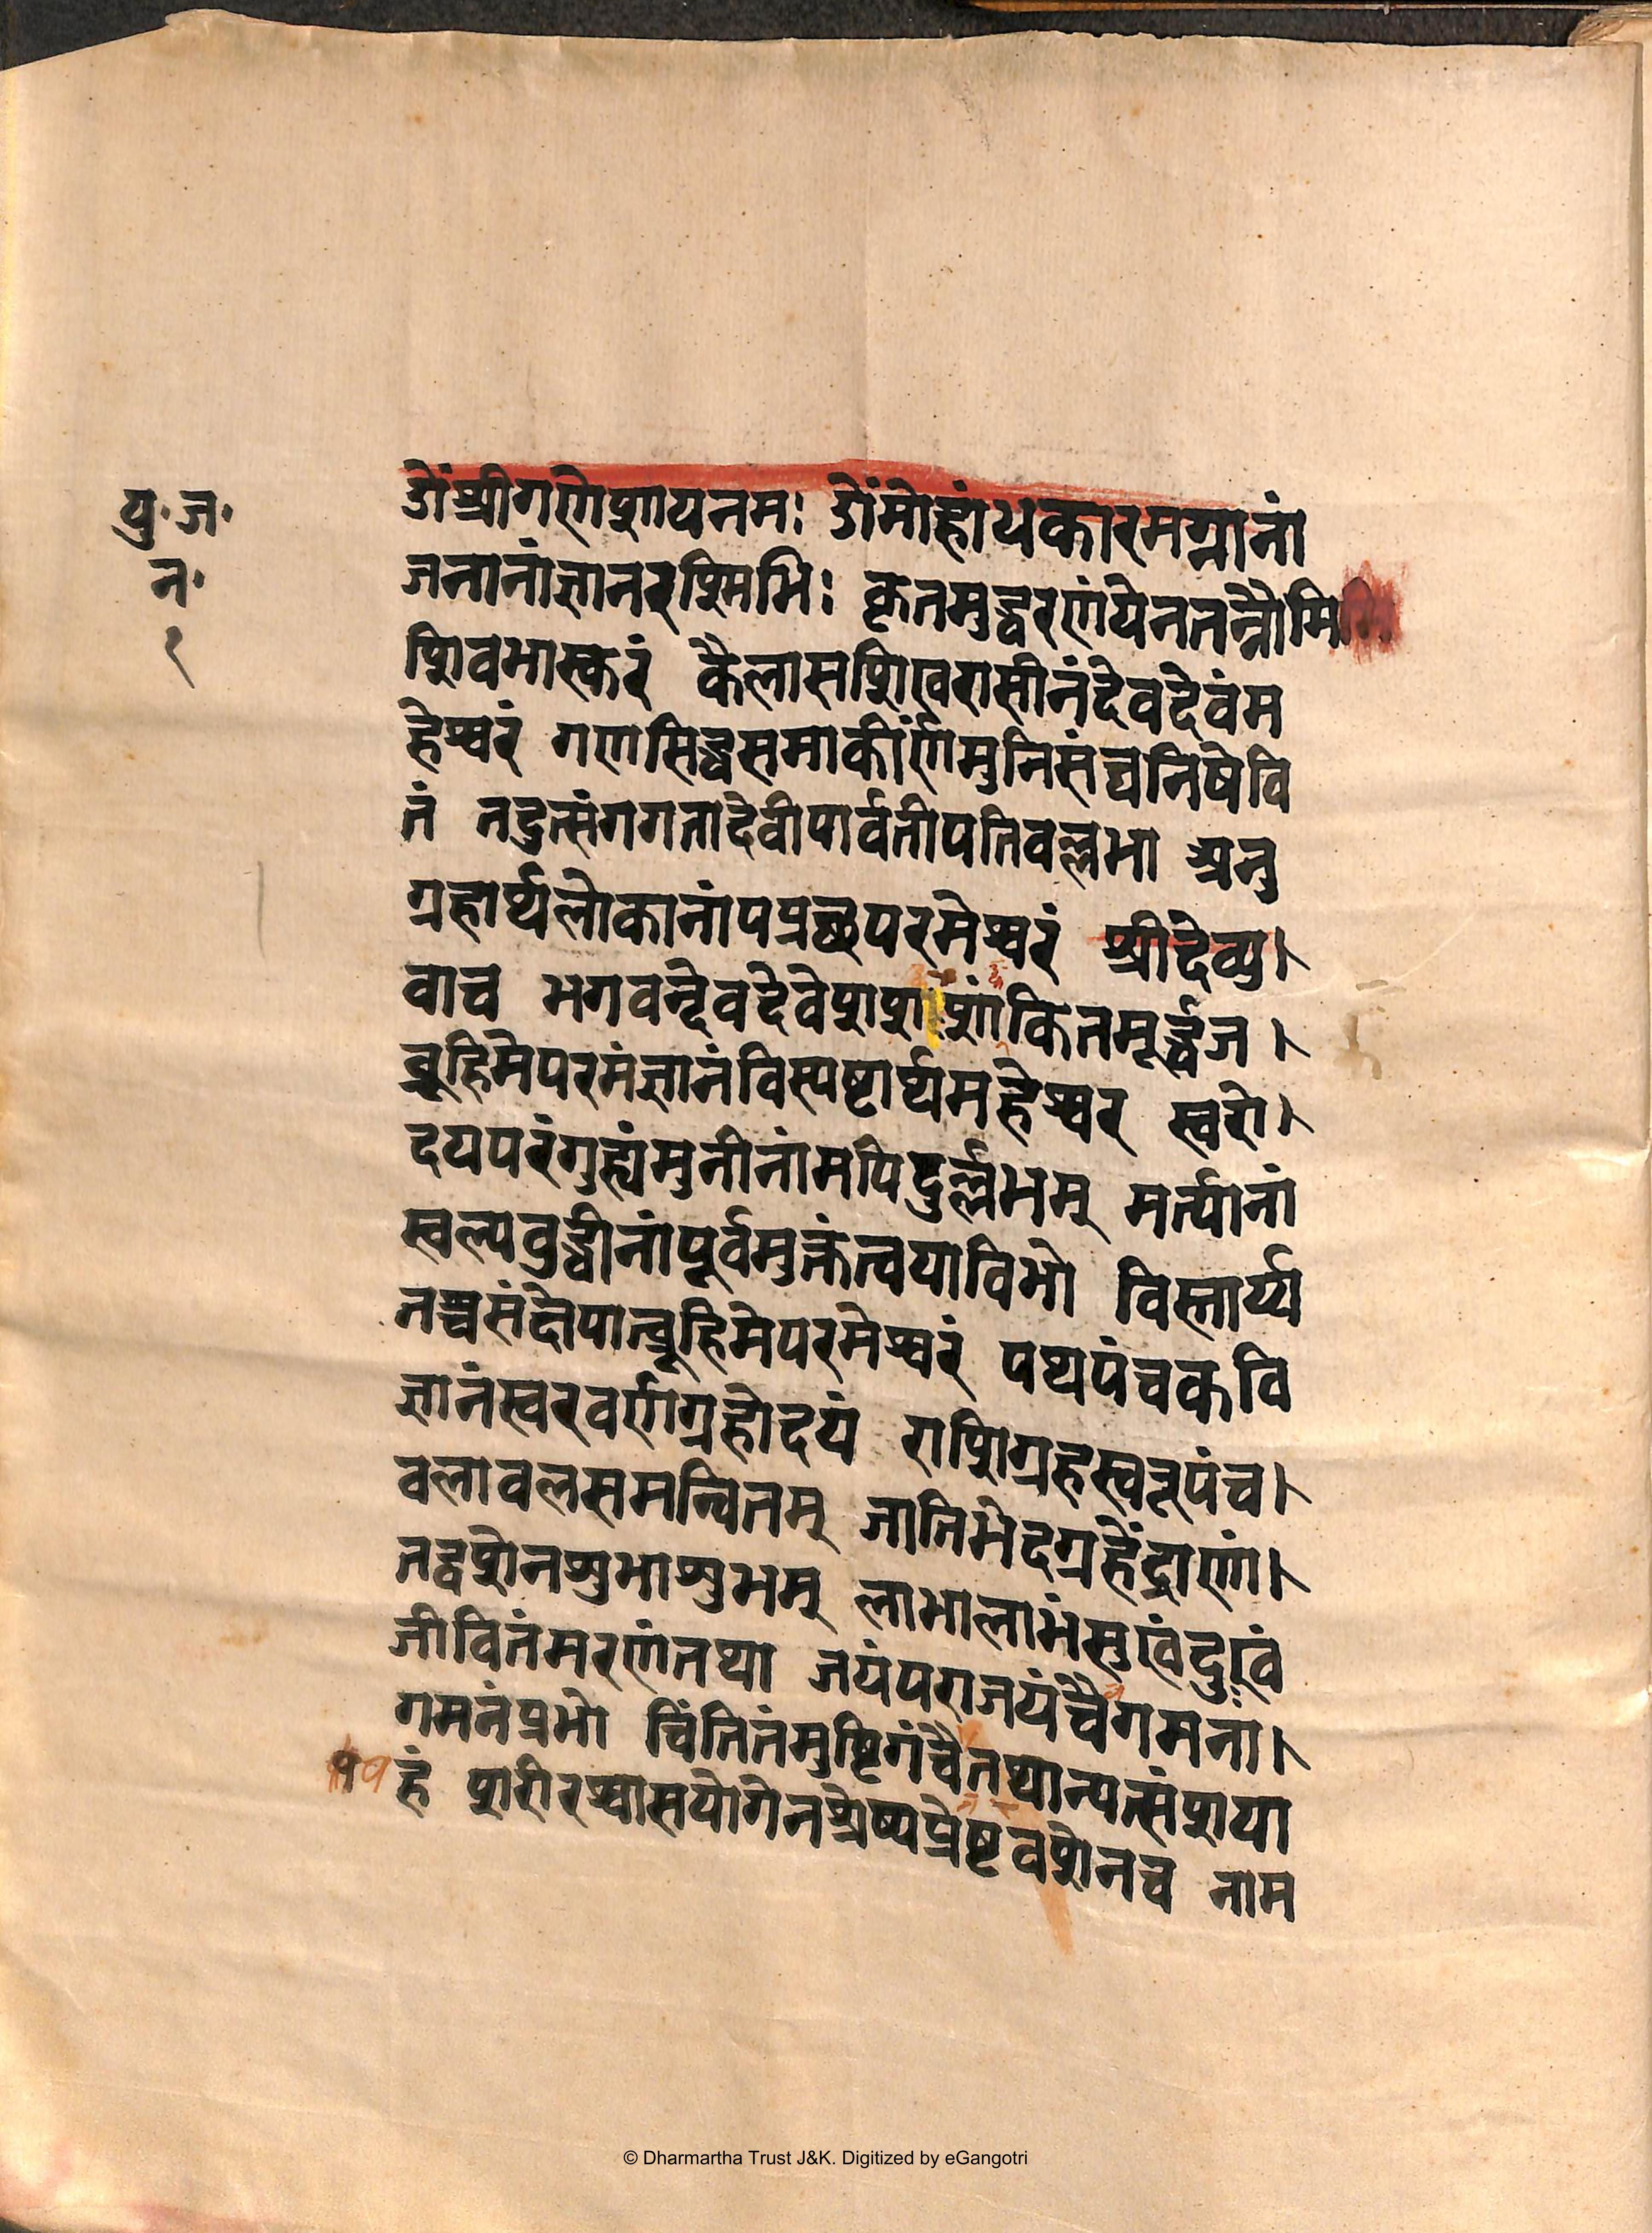 यु॰ ज॰
न॰
१
ॐश्रीगणेशायनमः ॐमोहांधकारमग्नानां
जनानांज्ञानरश्मिभिः कृतमुद्धरणंयेनतन्नौमि
शिवभास्करं कैलासशिखरासीनंदेवदेवंम
हेश्वरं गणसिद्धसमाकीर्णंमुनिसंघनिषेवि
तं तदुत्संगगतादेवीपार्वतीपतिवल्लभा अनु
ग्रहार्थलोकानांपप्रछपरमेश्वरं श्रीदेव्यु।
वाच भगवन्देवदेवेशशशांकितमूर्द्धज।
ब्रूहिमेपरमंज्ञानंविस्पष्टार्थमहेश्वर स्वरो।
दयपरंगुह्यंमुनीनांमपिदुर्ल्लभम् मर्त्यानां
स्वल्पवुद्धीनांपूर्वमुक्तंत्वयाविभो विस्तार्य्य
तच्चसंक्षेपान्ब्रूहिमेपरमेश्वरं पथपंचकवि
ज्ञानंस्वरवर्णग्रहोदयं राशिग्रहस्वरूपंच।
वलावलसमन्वितम् जातिभेदग्रहेंद्राणां।
तद्वशेनशुभाशुभम् लाभालाभंसुखंदुःखं
जीवितंमरणंतथा जयंपराजयंचैगमनां।
गमनंप्रभो चिंतितंमुष्टिगंचैतथान्यत्संशया
हं शरीरश्वासयोगेनश्रेष्यप्रेष्टवशेनच नाम
© Dharmartha Trust J&K. Digitized by eGangotri